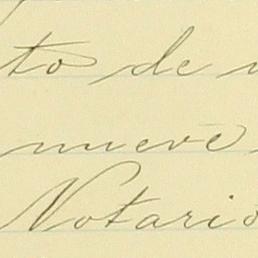 to de
nueve
Notario